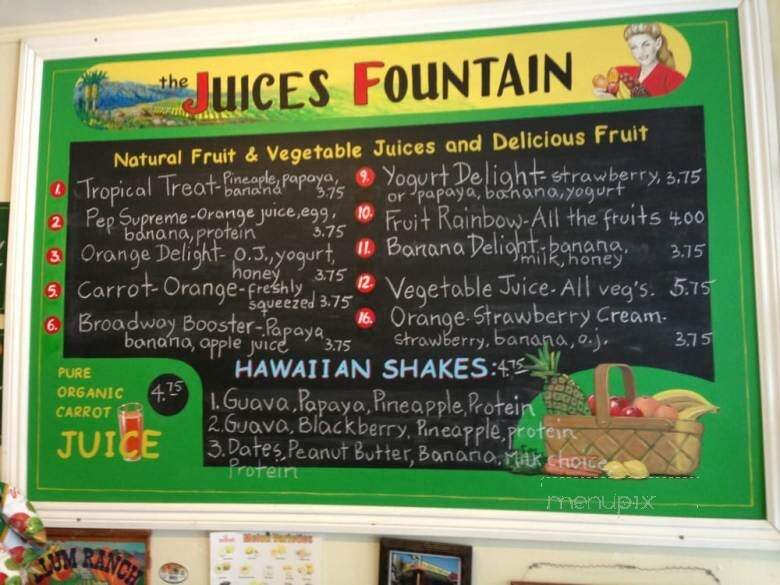 the JUICES FOUNTAIN
Natural Fruit & Vegetable Juices and Delicious Fruit
1. Tropical Treat-Pineaple, papaya,
banana 3.75
2 Pep Supreme-Orange juice, egg,
banana, protein 3.75
3. Orange Delight- O.J., yogurt,
honey 3.75
5. Carrot-Orange-freshly
squeezed 3.75
6. Broadway Booster-Papaya,
banana, apple juice 3.75
9. Yogurt Delight-strawberry, 3.75
or papaya, banana, yogurt
10. Fruit Rainbow-All the fruits 4.00
11. Banana Delight-banana,
milk, honey 3.75
12. Vegetable Juice-All veg's. 5.75
16. Orange-Strawberry Cream-
strawberry, banana, o.j. 3.75
HAWAIIAN SHAKES: 4.75
1. Guava, Papaya, Pineapple, Protein
2. Guava, Blackberry, Pineapple, protein
3. Dates, Peanut Butter, Banana, Milk choice
Protein
PURE
ORGANIC
CARROT
JUICE
4.75
menupix
LLUM RANCH
Melon Varieties